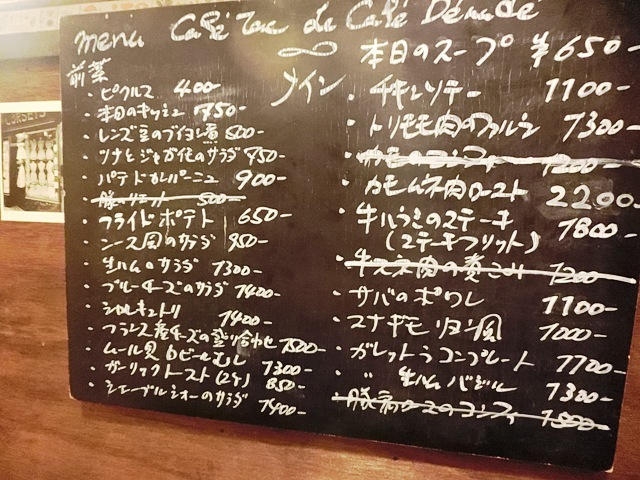 menu Café
本日のスープ ¥650-
前菜
・ピクルス 400-
・本日のキッシュ 750-
・レンズ豆のブイヨン煮 500-
・ツナとじゃが花のサラダ 750-
・パテドカンパーニュ 900-
・豚のリエット 500-
・フライドポテト 650-
・ニース風のサラダ 950-
・生ハムのサラダ 1300-
・ブルーチーズのサラダ 1400-
・シャルキュトリ 1400-
・フランス産チーズの盛り合わせ 1500-
・ムール貝のビールむし 1300-
・ガーリックトースト(2ケ) 850-
・シェーブルショーのサラダ 1400-
メイン
・チキンソテー 1100-
・トリモモ肉のファルシ 1300-
・カモのコンフィ 1200-
・カモムネ肉ロースト 2200-
・牛ハラミのステーキ 1800-
(ステーキフリット)
・牛スネ肉の煮こみ 1200-
・サバのポワレ 1100-
・スナギモリヨン風 1000-
・ガレットランコンプレート 1100-
・〃 生ハムバジル 1300-
1500-